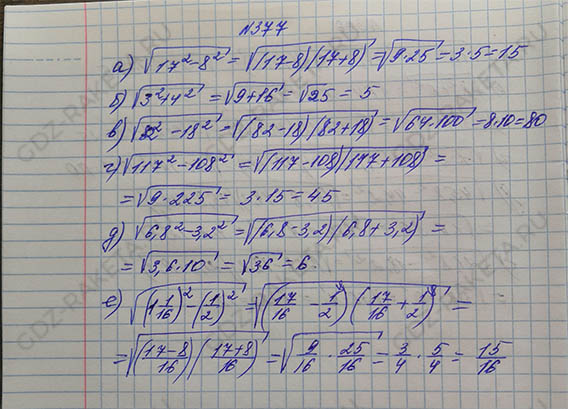 №377
а) √(17²-8²) = √((17-8)(17+8)) = √(9·25) = 3·5 = 15
б) √(3²+4²) = √(9+16) = √25 = 5
в) √(82²-18²) = √((82-18)(82+18)) = √(64·100) = 8·10 = 80
г) √(117²-108²) = √((117-108)(117+108)) =
= √(9·225) = 3·15 = 45
д) √(6,8²-3,2²) = √((6,8-3,2)(6,8+3,2)) =
= √(3,6·10) = √36 = 6.
е) √((1 1/16)²-(1/2)²) = √((17/16 - 1/2)(17/16 + 1/2)) =
= √((17-8/16)(17+8/16)) = √(9/16 · 25/16) = 3/4 · 5/4 = 15/16
GDZ-RAKETA.RU